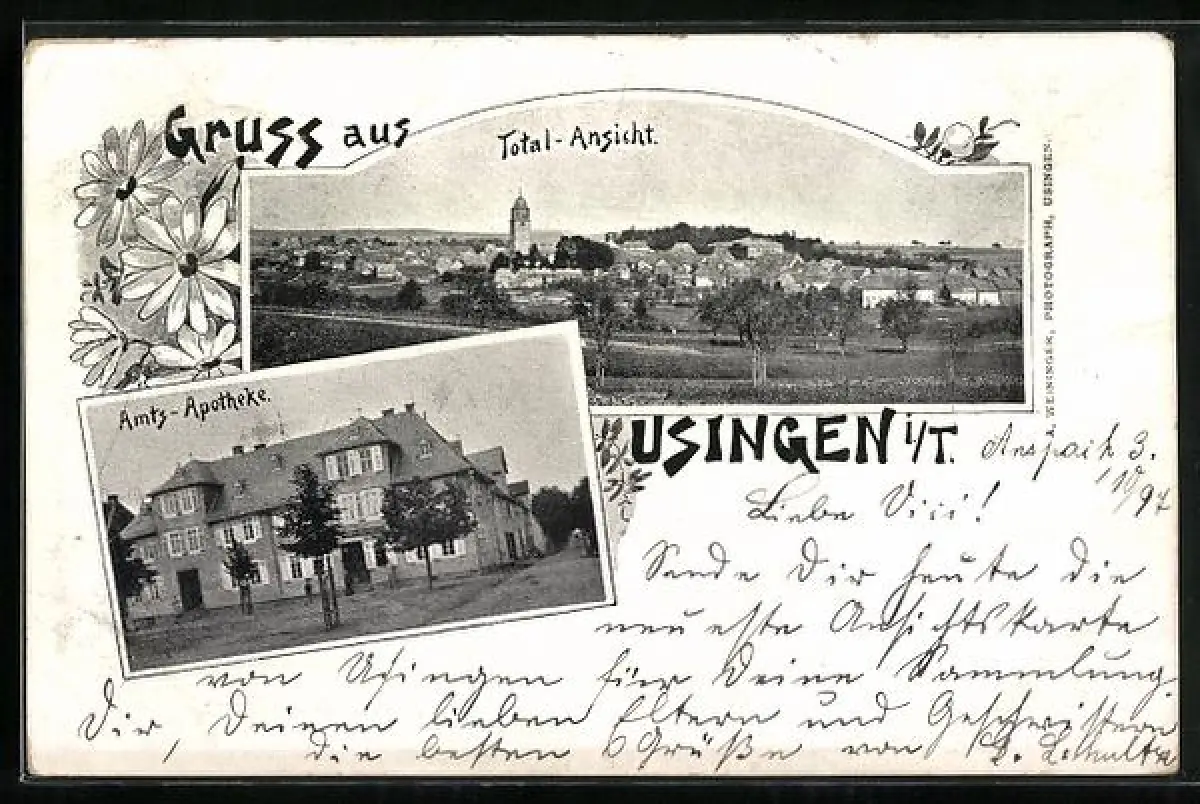 Gruss aus
Total-Ansicht.
A. WENNINGER, PHOTOGRAPH, USINGEN.
Amts-Apotheke.
USINGEN i/T.
Anspach 3.
/10/97
Liebe Vici!
Sende Dir heute die
neueste Ansichtskarte
von Usingen für Deine Sammlung.
Dir, Deinen lieben Eltern und Geschwistern
die besten Grüße von